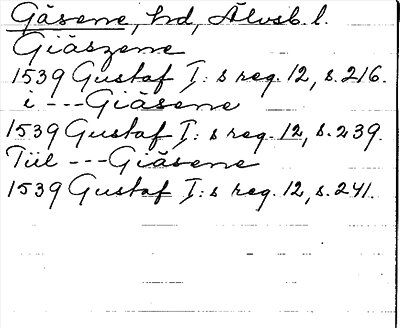 Gäsene, hd, Älvsb. l.
Giäszene
1539 Gustaf I:s reg. 12, s. 216.
i --- Giäsene
1539 Gustaf I:s reg. 12, s. 239.
Tiil --- Giäsene
1539 Gustaf I:s reg. 12, s. 241.